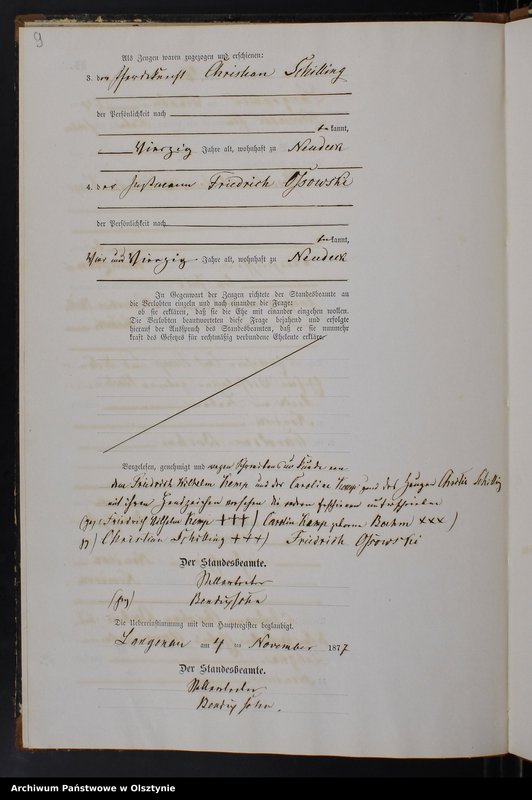 9
Als Zeugen waren zugezogen und erschienen:
3. der Pferdeknecht Christian Schilling
der Persönlichkeit nach
bekannt,
Vierzig Jahre alt, wohnhaft zu Neudeck
4. der Instmann Friedrich Ossowski
der Persönlichkeit nach
bekannt,
Vier und Vierzig Jahre alt, wohnhaft zu Neudeck
In Gegenwart der Zeugen richtete der Standesbeamte an
die Verlobten einzeln und nach einander die Frage:
ob sie erklären, daß sie die Ehe mit einander eingehen wollen.
Die Verlobten beantworteten diese Frage bejahend und erfolgte
hierauf der Ausspruch des Standesbeamten, daß er sie nunmehr
kraft des Gesetzes für rechtmäßig verbundene Eheleute erkläre.
Vorgelesen, genehmigt und wegen Schreibens Unkunde von
dem Friedrich Wilhelm Kamp und der Caroline Kamp und des Zeugen Christian Schilling
mit ihren Handzeichen versehen die andern Erschienen unterschrieben
(gez) Friedrich Wilhelm Kamp +++) Carolin Kamp geborne Boehm xxx)
gz) Christian Schilling +++) Friedrich Ossowski
Der Standesbeamte.
Stellvertreter
(gez)
Die Uebereinstimmung mit dem Hauptregister beglaubigt.
Langenau am 4 ten November 1877
Der Standesbeamte.
Stellvertreter
Archiwum Państwowe w Olsztynie